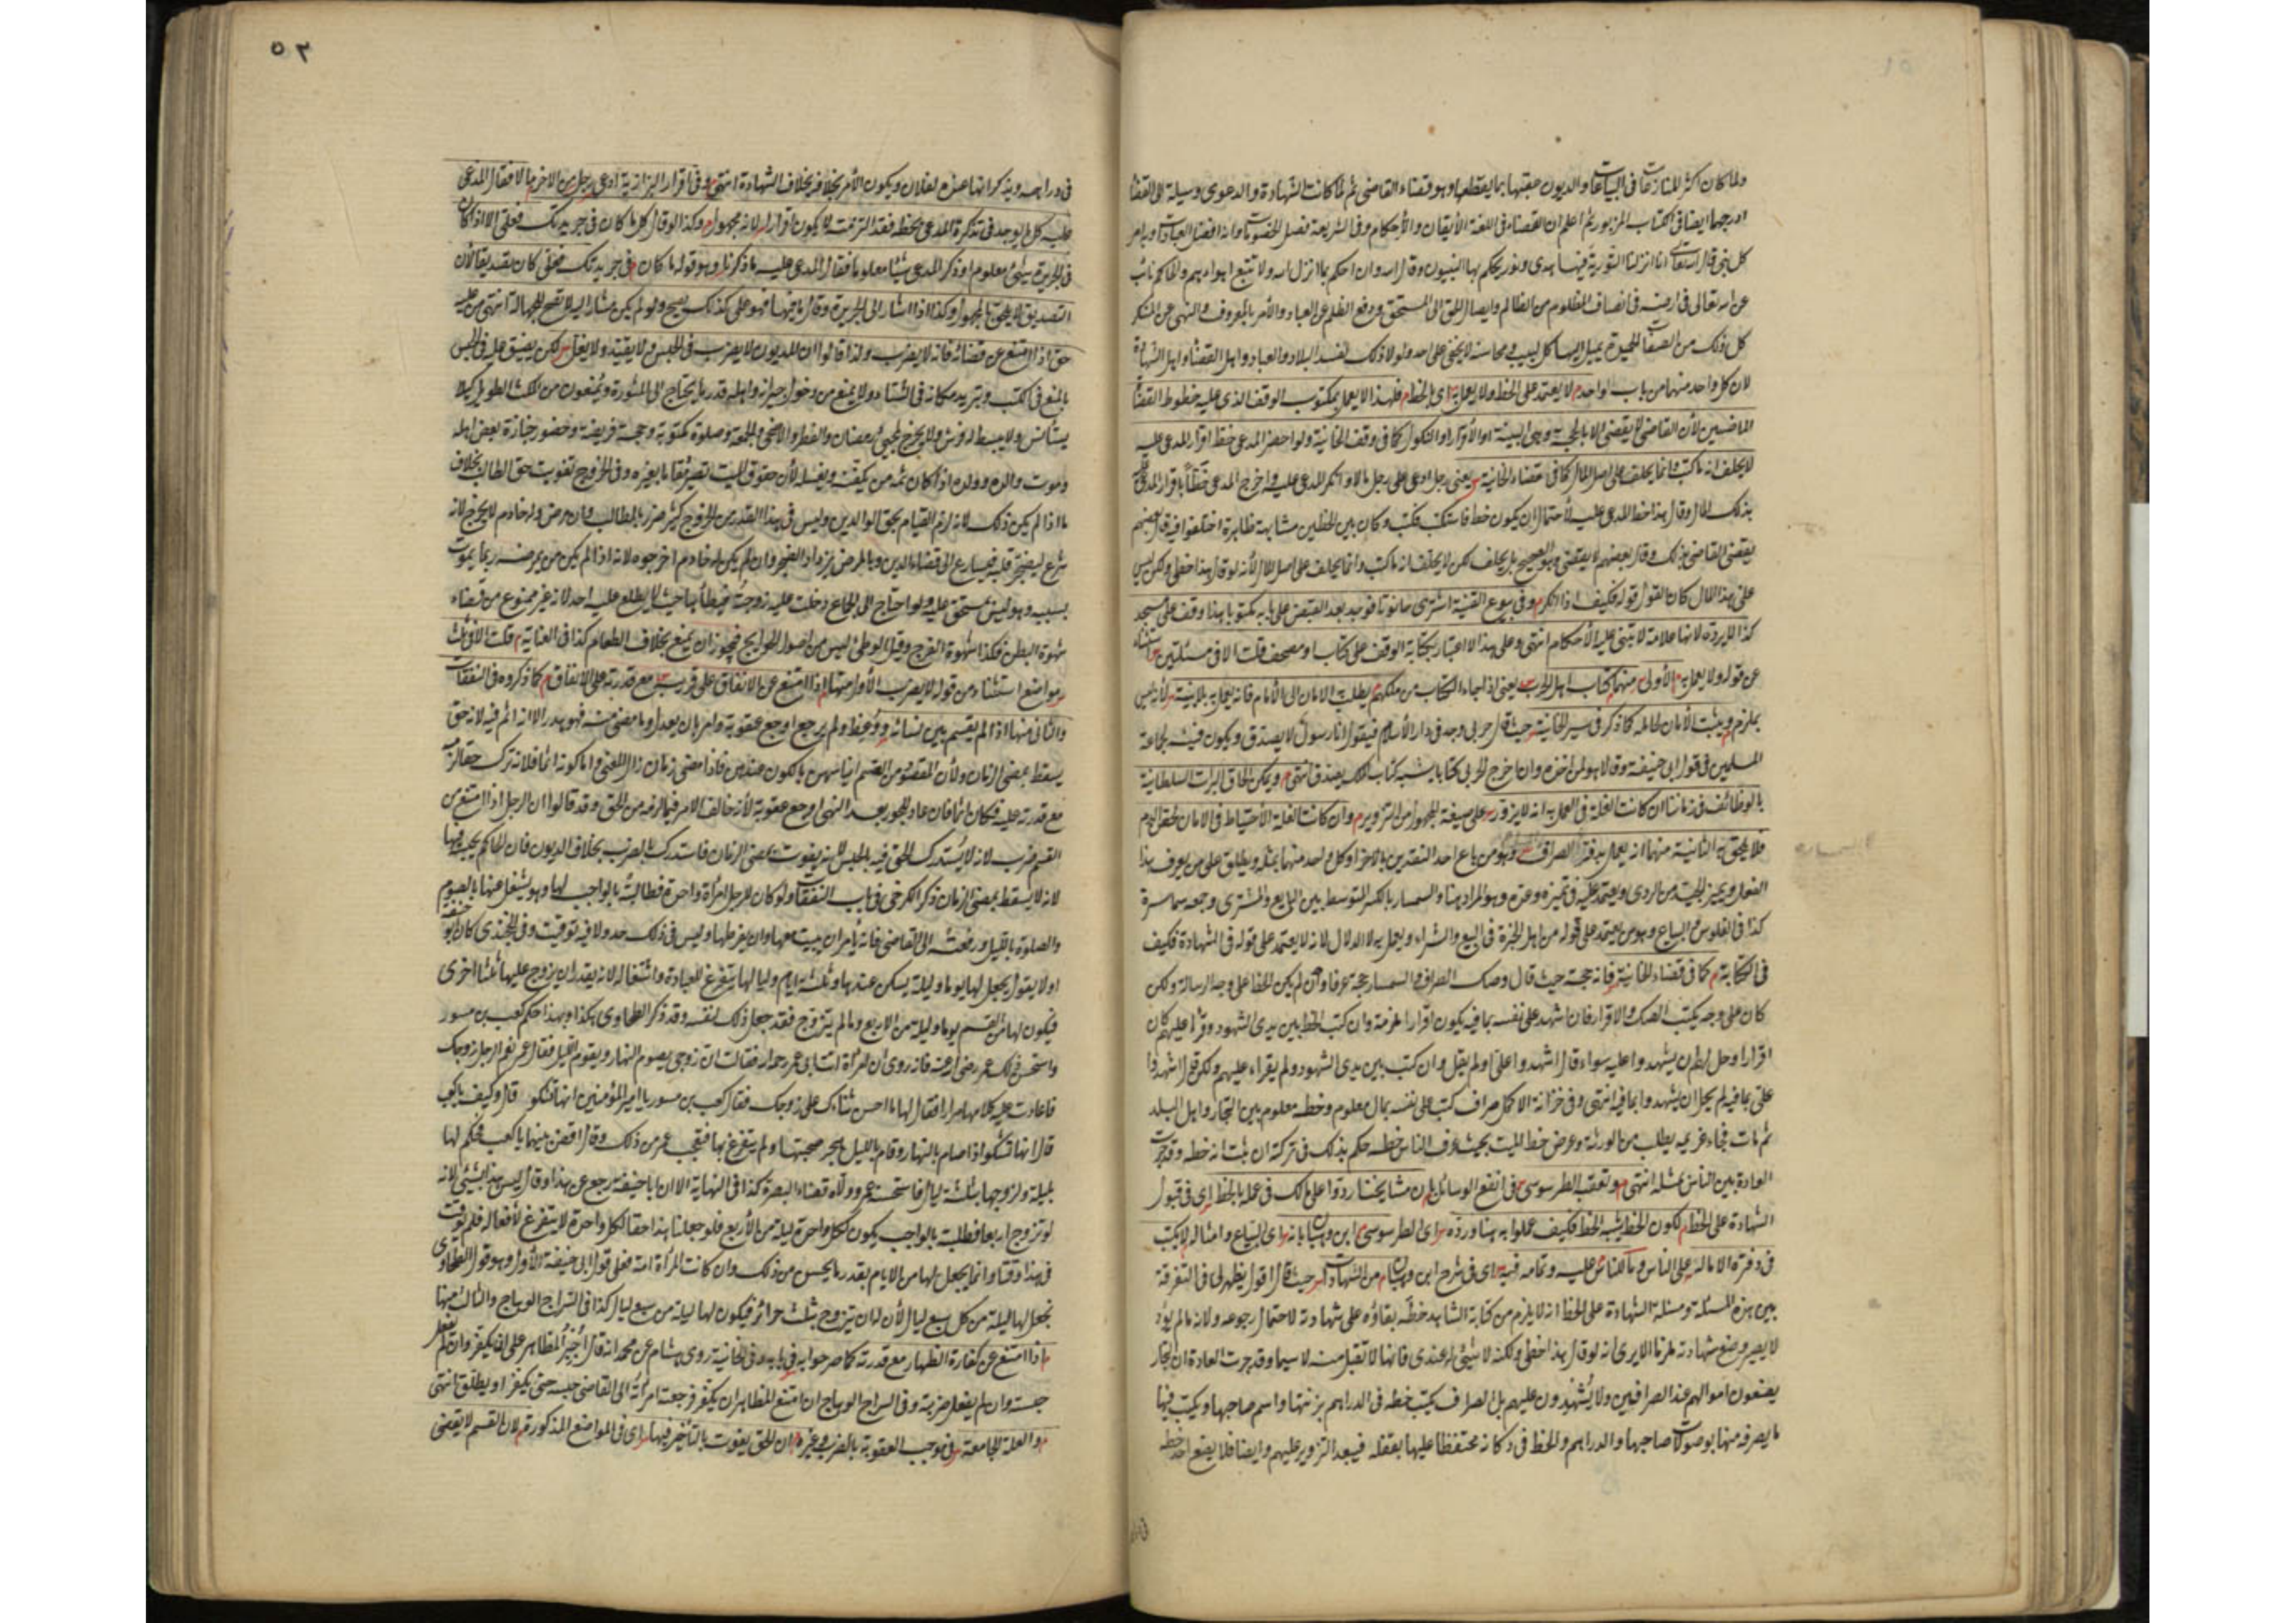 ولما كان اكثر المنازعات في البياعات والديون عقبها بما يقطعها وهو قضاء القاضي ثم لما كانت الشهادة والدعوى وسيلة الى القضاء
ادرجهما ايضا في الكتاب المزبور ثم اعلم ان القضاء في اللغة الأتقان والأحكام وفي الشريعة فصل الخصومات وانه افضل العبادات وبه امر
كل نبي قال الله تعالى انا انزلنا التورية فيها هدى ونور يحكم بها النبيون وقال الله وان احكم بما انزل الله ولا تتبع اهواءهم والحاكم نائب
عن الله تعالى في ارضه في انصاف المظلوم من الظالم وايصال الحق الى المستحق ودفع الظلم عن العباد والأمر بالمعروف والنهى عن المنكر
كل ذلك من الصفات الحميدة يميل اليها كل لبيب ومحاسنه لا يخفى على احد ولولا ذلك لفسد البلاد والعباد واهل القضاء واهل الشهادة
لان كل واحد منهما من باب واحد م لا يعتمد على الخط ولا يعمل به اى بالخط م فلهذا لا يعمل بمكتوب الوقف الذي عليه خطوط القضاة
الماضيين لأن القاضي لا يقضي الا بالحجة وهي البينة او الأقرار او النكول كما في وقف الخانية ولو احضر المدعي خط اقرار المدعى عليه
لا يحلف انه ما كتب وانما يحلف على اصل المال كما في قضاء الخانية يعني رجل ادعى على رجل مالا وانكر المدعى عليه واخرج المدعي خطا باقرار المدعى عليه
بذلك المال وقال هذا خط المدعى عليه لأحتمال ان يكون خطه فاستكتب فكتب وكان بين الخطين مشابهة ظاهرة اختلفوا فيه قال بعضهم
يقضي القاضي بذلك وقال بعضهم لا يقضي وهو الصحيح بل يحلف لكن لا يحلف انه ما كتب وانما يحلف على اصل المال لأنه لو قال هذا خطى ولكن ليس
على هذا المال كان القول قوله فكيف اذا انكر م وفي بيوع القنية اشترى حانوتا فوجد بعد القبض على بابه مكتوبا هذا وقف على مسجد
كذا لا يرده لانها علامة لا تبنى عليه الأحكام انتهى وعلى هذا لا اعتبار بكتابة الوقف على كتاب او مصحف قلت الا في مسئلتين استثناء
عن قوله ولا يعمل به م الأولى منهما كتاب اهل الحرب يعني اذا جاء الكتاب من ملكهم يطلب الامان الى الأمام فانه يعمل به بلا بينة لأنه ليس
بملزم م ويثبت الأمان لحامله كما ذكر في سير الخانية حيث قال حربي وجد في دار الأسلام فيقول انا رسول لا يصدق ويكون فيئا لجماعة
المسلمين في قول ابي حنيفة وقالا هو لمن اخذه وان اخرج الحربي كتابا يشبه كتاب الملك يصدق انتهى م ويمكن الحاق البرات السلطانية
بالوظائف في زماننا ان كانت العلة في العمل به انه لا يزور على صيغة المجهول من التزوير م وان كانت العلة الأحتياط في الامان لحقن الدم
فلا يلحق به الثانية منهما انه يعمل بدفتر الصراف وهو من باع احد النقدين بالآخر او كل واحد منهما بمثله ويطلق على من يعرف هذا
الفعل ويميز الجيد من الردى ويعتمد عليه في تميزه وحزه وهو المراد هنا والسمسار بالكسر المتوسط بين البايع والمشترى وجمعه سماسرة
كذا في القاموس والبياع وهو من يعتمد على قوله من اهل الخبرة في البيع والشراء ويعمل به لا الدلال لانه لا يعتمد على قوله في الشهادة فكيف
في الكتابة م كما في قضاء الخانية فانه حجة حيث قال وصك الصراف والسمسار حجة عرفا وان لم يكن الخط على وجه الرسالة ولكن
كان على وجه يكتب الصك والاقرار فان اشهد على نفسه بما فيه يكون اقرارا ملزمة وان كتب الخط بين يدى الشهود وقرأ عليهم كان
اقرارا وحل لهم ان يشهدوا عليه سواء قال اشهدوا على او لم يقل وان كتب بين يدى الشهود ولم يقراء عليهم ولكن قال اشهدوا
على بما فيه لم يحل ان يشهدوا بما فيه انتهى وفي خزانة الاكمل صراف كتب على نفسه بمال معلوم وخطه معلوم بين التجار واهل البلد
ثم مات فجاء غريمه يطلب من الورثة وعرض خط الميت بحيث عرف الناس خطه حكم بذلك في تركته ان ثبت انه خطه وقد جرت
العادة بين الناس بمثله انتهى م وتعقب الطرسوسي في انفع الوسائل بان مشايخنا ردوا على مالك في عمله بالخط اى في قبول
الشهادة على الخط م لكون الخط يشبه الخط فكيف عملوا به هنا ورده اى الطرسوسي ابن وهبان بانه اى البياع وامثاله لا يكتب
في دفتره الا ماله على الناس وما للناس عليه وتمامه فيه اى في شرح ابن وهبان من الشهادات حيث قال اقول يظهر لي في التفرقة
بين هذه المسئلة ومسئلة الشهادة على الخط انه لا يلزم من كتابة الشاهد خطه بقاؤه على شهادته لاحتمال رجوعه ولانه ما لم يؤد
لا يصير وضع شهادته ملزما الا يرى انه لو قال هذا خطى ولكنه لا شيئ له عندى فانها لا تقبل منه لا سيما وقد جرت العادة ان التجار
يضعون اموالهم عند الصرافين ولا يُشهدون عليهم بل الصراف يكتب خطه في الدراهم بزنتها واسم صاحبها ويكتب فيها
ما يصرفه منها بوصولات صاحبها والدراهم والخط في دكانه محتفظا عليها بقفله فيبعد التزوير عليهم وايضا فلا يضع احد خطه
٥٢
في دراهمه ويذكر انها هذه لفلان ويكون الأمر بخلافه بخلاف الشهادة انتهى وفي اقرار البزازية ادعى رجل من الاخر مالا فقال المدعى
عليه كل ما يوجد في تذكرة المدعي بخطه فقد التزمته لا يكون اقرارا لانه مجهول وكذا لو قال كل ما كان في جريدتك فعلى الا اذا كان
في الجريدة شيئ معلوم او ذكر المدعي شيئا معلوما فقال المدعى عليه ما ذكرنا وهو قوله ما كان في جريدتك فعلى كان تصديقا لأن
التصديق لا يلحق بالمجهول وكذا اذا اشار الى الجريدة وقال ما فيها فهو على كذلك يصح ولو لم يكن مشارا اليه لا تصح للجهالة انتهى من عليه
حق اذا امتنع عن قضائه فانه لا يضرب ولذا قالوا ان المديون لا يضرب في الحبس ولا يقيد ولا يغل لكن يضيق عليه في الحبس
بالمنع في الكتب وتبريد مكانه في الشتاء ولا يمنع من دخول جيرانه واهله قدر ما يحتاج الى المشورة ويمنعون من المكث الطويل كيلا
يستأنس ولا يبسط له فرش ولا يخرج لمجيئ رمضان والفطر والاضحى والجمعة وصلوة مكتوبة وحجة فريضة وحضور جنازة بعض اهله
وموت والده وولده اذا كان ثمه من يكفنه ويغسله لأن حقوق الميت تصير مقاما بغيره وفي الخروج تفويت حق الطالب بخلاف
ما اذا لم يكن ذلك لانه لزم القيام بحق الوالدين وليس في هذا القدر من الخروج كثير ضرر بالطالب وان مرض وله خادم لا يخرج لانه
شرع ليضجر قلبه فيسارع الى قضاء الدين وبالمرض يزداد الضجر وان لم يكن له خادم اخرجوه لانه اذا لم يكن من يمرضه ربما يموت
بسببه وهو ليس بمستحق عليه ولو احتاج الى الجماع دخلت عليه زوجته فيطأها حيث لا يطلع عليه احد لانه غير ممنوع من قضاء
شهوة البطن فكذا شهوة الفرج وقيل الوطئ ليس من اصول الحوايج فيجوز ان يمنع بخلاف الطعام كذا في العناية م قلت الا في ثلث
مواضع استثناء من قوله لا يضرب الأولى منها اذا امتنع عن الانفاق على قريبه مع قدرته على الانفاق كما ذكروه في النفقات
والثاني منها اذا لم يقسم بين نسائه ووُعظ ولم يرجع اوجع عقوبة وامر بان يعدل وما مضى منه فهو هدر الا انه اثم فيه لانه حق
يسقط بمضي الزمان ولأن المقصود من القسم ايناسهن بالكون عندهن فاذا مضى زمان زال المعنى واما كونه اثما فلانه ترك حقا لزمه
مع قدرته عليه فكان اثما فان عاد للجور بعد النهى اوجع عقوبة لأنه خالف الامر فيما لزمه من الحق وقد قالوا ان الرجل اذا امتنع من
القسم ضرب لانه لا يُستدرك الحق فيه بالحبس لانه يفوت بمضى الزمان فاستدرك بالضرب بخلاف الديون فان الحاكم يحبس فيها
لانه لا يسقط بمضى الزمان ذكر الكرخي في باب النفقات ولو كان للرجل امرأة واحدة فطالبته بالواجب لها وهو يشتغل عنها بالصوم
والصلوة بالليل ورفعته الى القاضي فانه يامر ان يبيت معها وان يفرطها وليس في ذلك حد ولا فيه توقيت وفي الخجندى كان ابو حنيفة
اولا يقول يجعل لها يوما وليلة يسكن عندها وثلثة ايام ولياليها يتفرغ للعبادة واشتغاله لانه يقدر ان يزوج عليها ثلثا اخرى
فيكون لها من القسم يوما وليلة من الاربع وما لم يتزوج فقد جعل ذلك لنفسه وقد ذكر الطحاوى هكذا وبهذا حكم كعب بن سور
واستحسن ذلك عمر رضى الله عنه فانه روى ان امرأة اتت الى عمر رحمه الله فقالت ان زوجي يصوم النهار ويقوم الليل فقال عمر نعم الرجل زوجك
فاعادت عليه كلامها مرارا فقال لها ما احسن ثناءك على زوجك فقال كعب بن سور يا امير المؤمنين انها تشكو قال وكيف يا كعب
قال انها تشكو اذا صام بالنهار وقام بالليل هجر صحبتها ولم يتفرغ بها فتعجب عمر من ذلك وقال اقض بينهما يا كعب فحكم لها
بليلة ولزوجها بثلثة ليال فاستحسنه عمر وولاه قضاء البصرة كذا في النهاية الا ان ابا حنيفة رجع عن هذا وقال ليس هذا بشيئ لانه
لو تزوج اربعا فطلبت بالواجب يكون لكل واحدة ليلة من الأربع فلو جعلنا هذا حقا لكل واحدة لا يتفرغ لأفعاله فلم يوقت
في هذا وقتا وانما يجعل لها من الايام بقدر ما يحسن من ذلك وان كانت المرأة امة فعلى قول ابي حنيفة الأول وهو قول الطحاوى
نجعل لها ليلة من كل سبع ليال لأن له ان يتزوج بثلث حرائر فيكون لها ليلة من سبع ليال كذا في السراج الوهاج والثالث منها
م اذا امتنع عن كفارة الظهار مع قدرته كما صرحوا به في بابه وفي الخانية روى هشام عن محمد انه قال أجبر المظاهر على ان يكفر وان لم يفعل
حبسته وان لم يفعل ضربته وفي السراج الوهاج ان امتنع المظاهر ان يكفر فرجعت امرأته الى القاضى حبسه حتى يكفر او يطلق انتهى
م والعلة الجامعة في موجب العقوبة بالضرب وغيره ان الحق يفوت بالتأخير فيها اى في المواضع المذكورة لان القسم لا يقضى